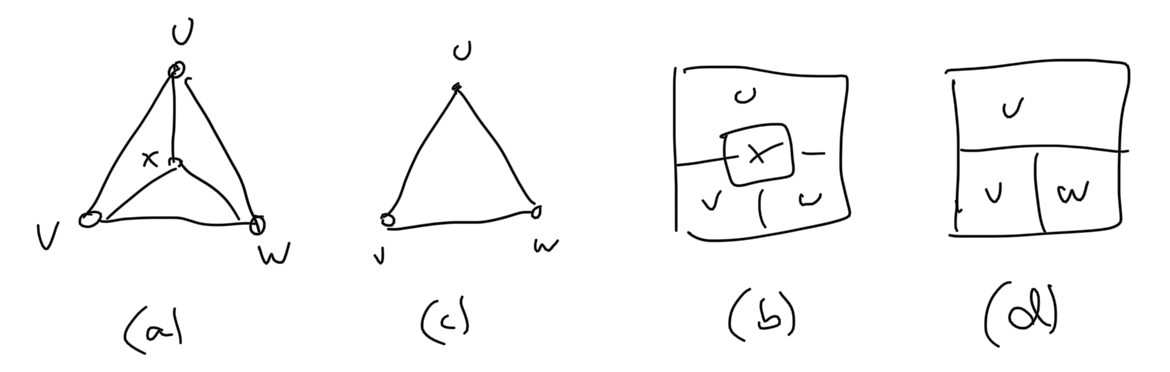 U
X
V
W
(a)
U
V
W
(c)
U
X
V
U
(b)
U
V
W
(d)